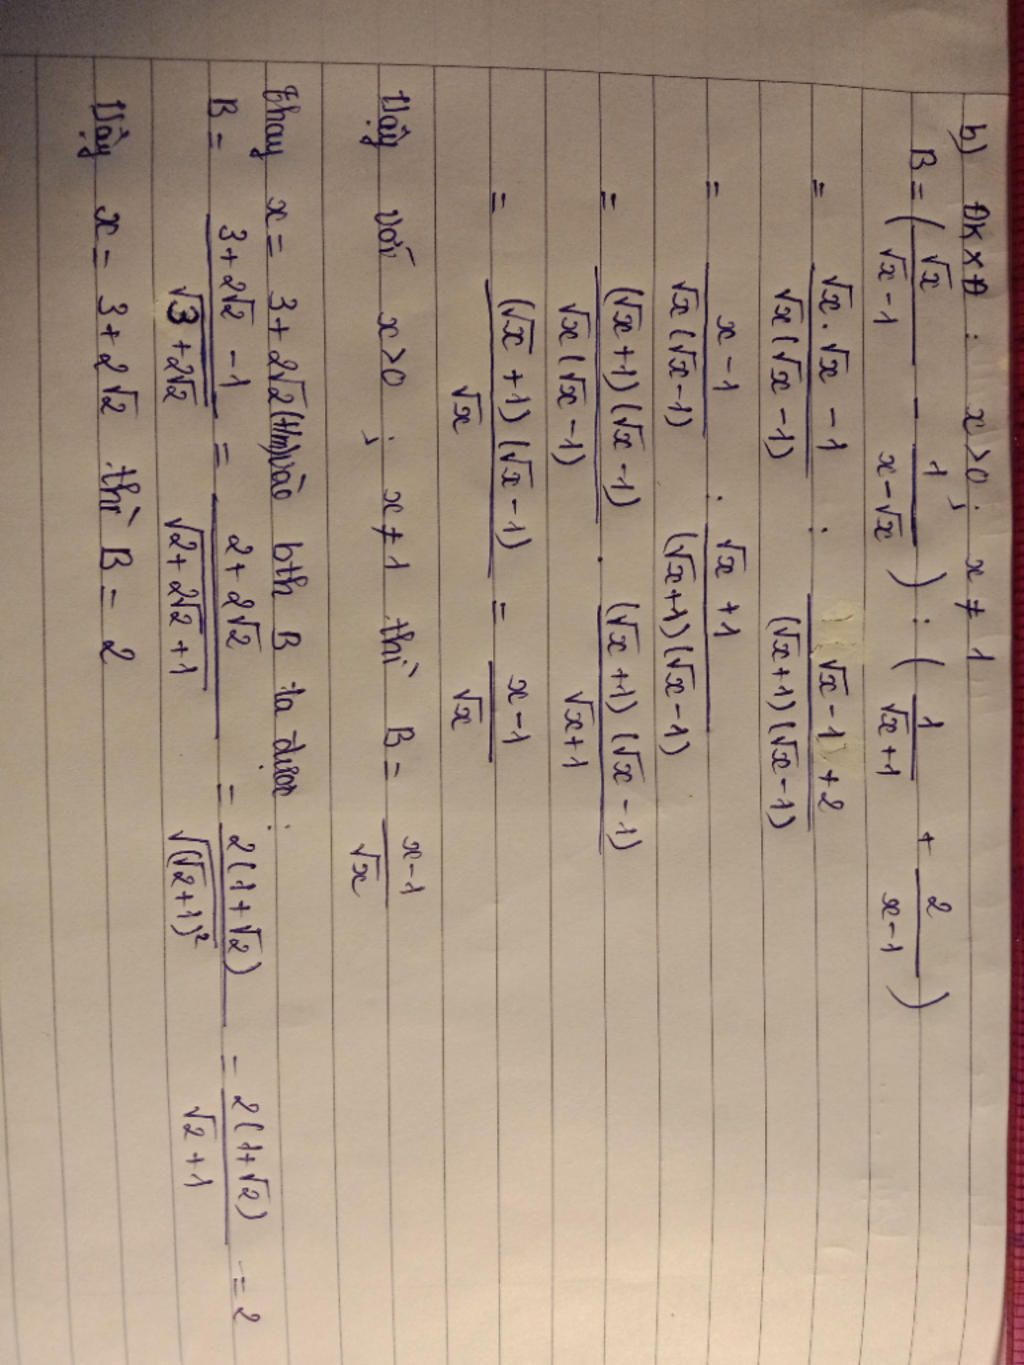 b) ĐKXĐ : x>0 ; x ≠ 1
B = ( √x / (√x - 1) - 1 / (x - √x) ) : ( 1 / (√x + 1) + 2 / (x - 1) )
= (√x . √x - 1) / (√x (√x - 1)) : (√x - 1 + 2) / ((√x + 1) (√x - 1))
= (x - 1) / (√x (√x - 1)) : (√x + 1) / ((√x + 1) (√x - 1))
= ((√x + 1) (√x - 1)) / (√x (√x - 1)) . ((√x + 1) (√x - 1)) / (√x + 1)
= ((√x + 1) (√x - 1)) / √x = (x - 1) / √x
Vậy với x>0 ; x ≠ 1 thì B = (x - 1) / √x
Thay x = 3 + 2√2 (t/m) vào bth B ta được :
B = (3 + 2√2 - 1) / √(3 + 2√2) = (2 + 2√2) / √(2 + 2√2 + 1) = 2(1 + √2) / √((√2 + 1)²) = 2(1 + √2) / (√2 + 1) = 2
Vậy x = 3 + 2√2 thì B = 2